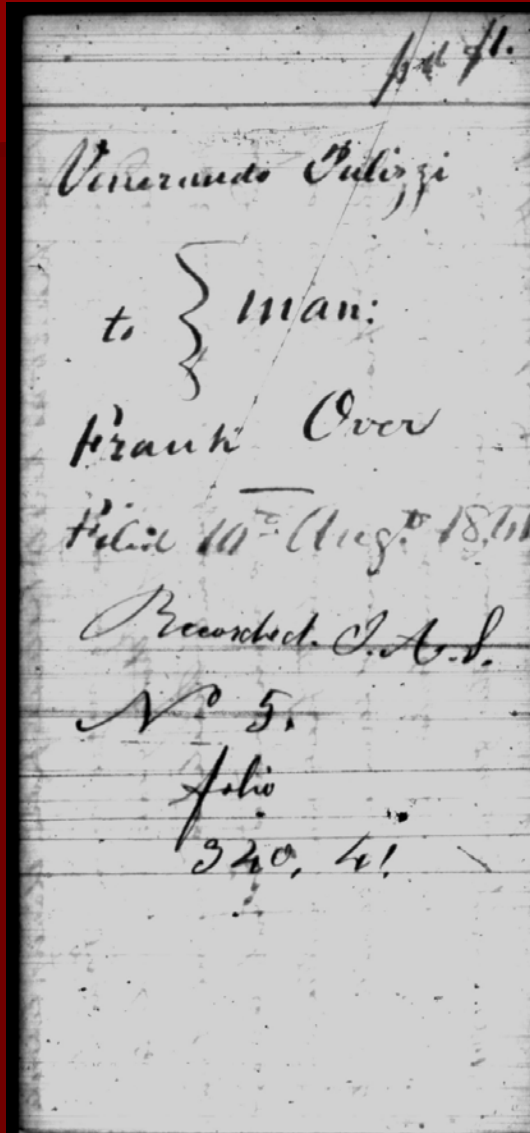 pd $1.
Venerando Pulizzi
to } Man:
Frank Over
Filed Augt
Recorded. J. A. S.
No 5.
folio
340, 41